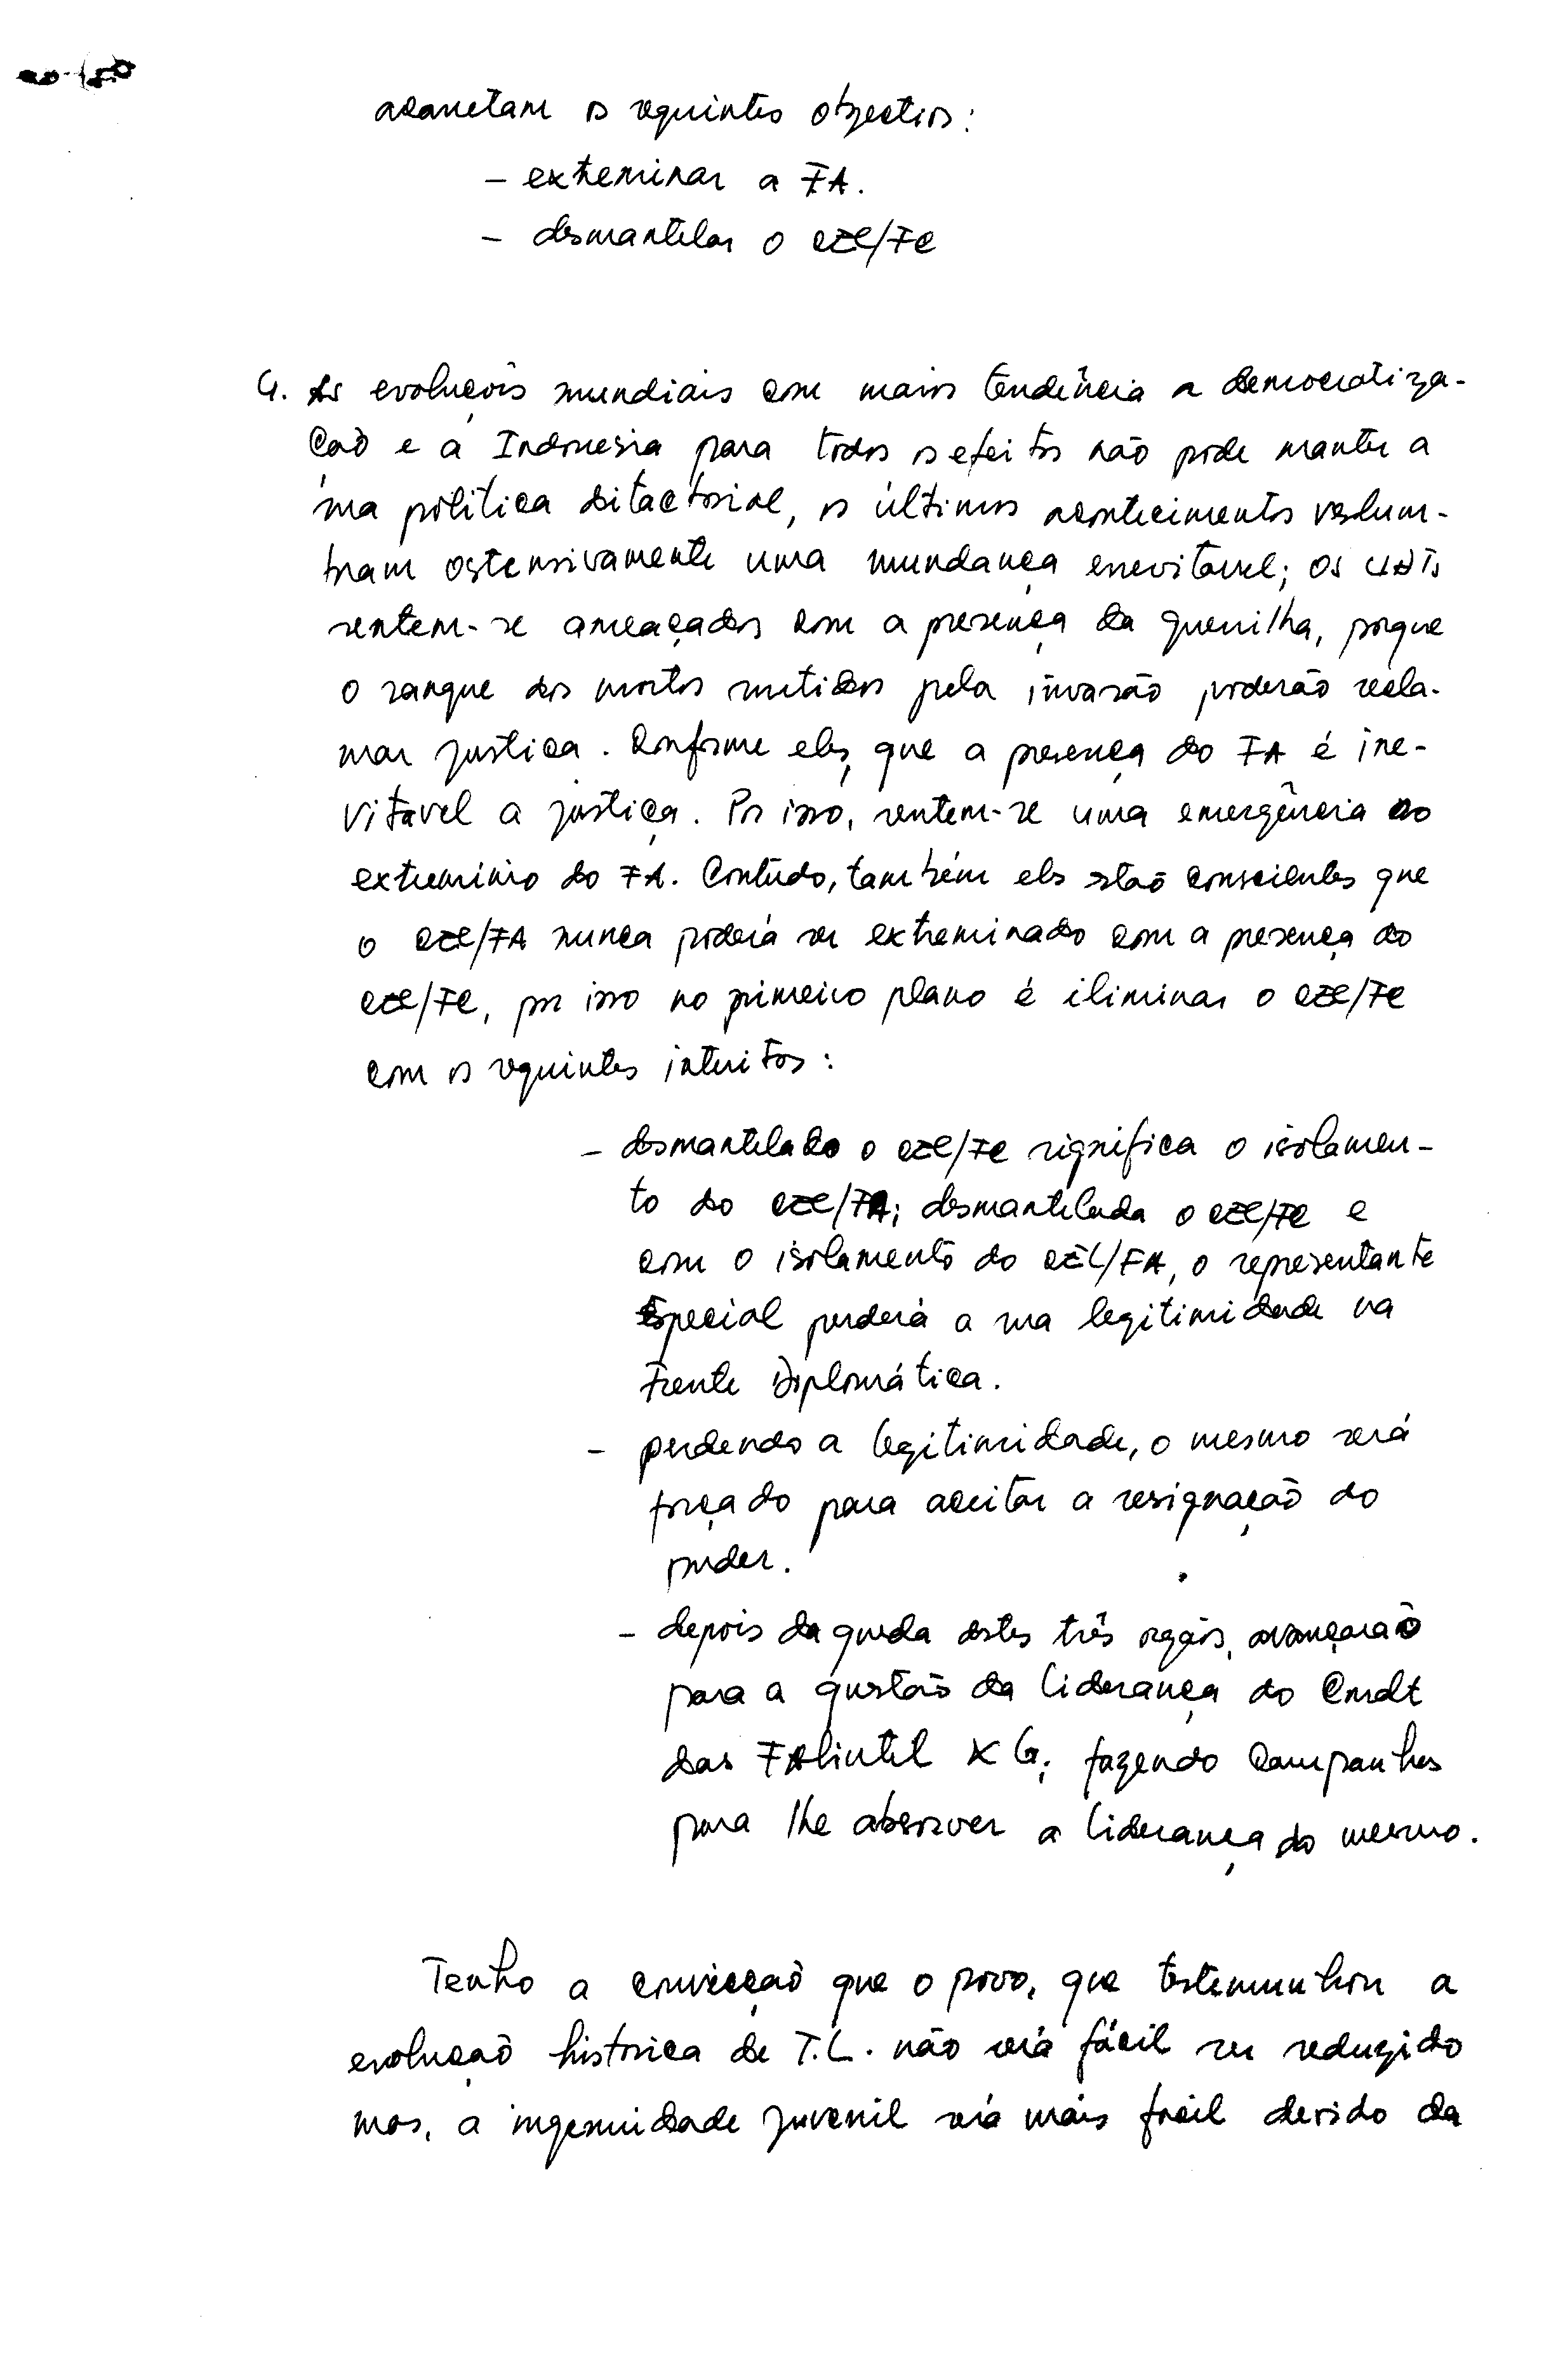 acarretam os seguintes objectivos:
- exterminar a FA.
- desmantelar o CEL/FC
4. As evoluções mundiais com maiss tendência a democratiza-
ção e a Indonesia para todos os efeitos não pode manter a
sua política ditactorial, os últimos acontecimentos veslum-
bram ostensivamente uma mundança enevitavel; os
sentem-se ameaçados com a presença da guerrilha, porque
o sangue dos mortos metidos pela invasão poderão recla-
mar justica. Conforme eles, que a presença do FA é ine-
vitavel a justiça. Por isso, sentem-se uma emergência ao
exterminio do FA. Contudo, também eles estão conscientes que
o CEL/FA nunca poderá ser exterminado com a presença do
CEL/FC, por isso no primeiro plano é iliminar o CEL/FC
com os seguintes intuitos:
- desmantelado o CEL/FC significa o isolamen-
to do CEL/FA; desmantelada o CEL/FC e
com o isolamento do CEL/FA, o representante
Especial perderá a sua legitimidade na
Frente Diplomática.
- perdendo a legitimidade, o mesmo será
forçado para aceitar a resignação do
puder.
- depois da queda destes três orgãos, avançarão
para a questão da liderança do Cmdt
das FAlintil XG; fazendo Campanhas
para lhe absorver a liderança do mesmo.
Tenho a convicção que o povo, que testemunhou a
evolução historica de T.L. não será fácil ser reduzido
mas, a ingenuidade juvenil será mais fácil devido da